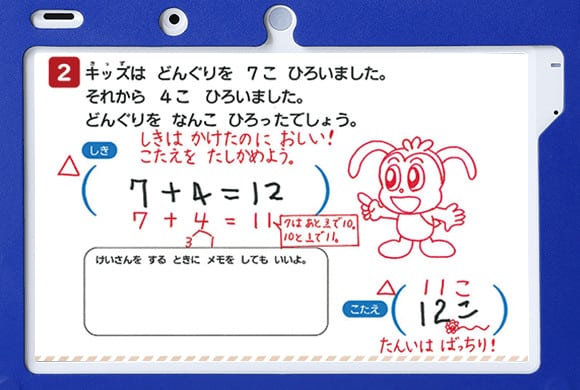 2 キッズは どんぐりを 7こ ひろいました。
それから 4こ ひろいました。
どんぐりを なんこ ひろったでしょう。
しきは かけたのに おしい!
こたえを たしかめよう。
しき
7+4=12
7+4=11
3 1
7はあと3で10。
10と1で11。
けいさんを する ときに メモを しても いいよ。
こたえ
11こ
12こ
たんいは ばっちり!